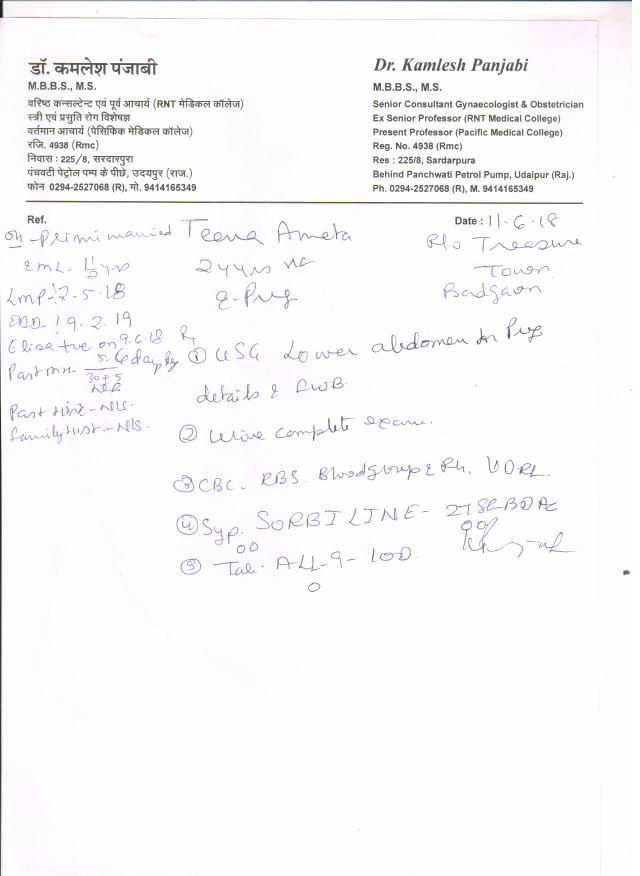 डॉ. कमलेश पंजाबी
M.B.B.S., M.S.
वरिष्ठ कन्सल्टेन्ट एवं पूर्व आचार्य (RNT मेडिकल कॉलेज)
स्त्री एवं प्रसुति रोग विशेषज्ञ
वर्तमान आचार्य (पेसिफिक मेडिकल कॉलेज)
रजि. 4938 (Rmc)
निवास : 225/8, सरदारपुरा
पंचवटी पेट्रोल पम्प के पीछे, उदयपुर (राज.)
फोन 0294-2527068 (R), मो. 9414165349
Dr. Kamlesh Panjabi
M.B.B.S., M.S.
Senior Consultant Gynaecologist & Obstetrician
Ex Senior Professor (RNT Medical College)
Present Professor (Pacific Medical College)
Reg. No. 4938 (Rmc)
Res : 225/8, Sardarpura
Behind Panchwati Petrol Pump, Udaipur (Raj.)
Ph. 0294-2527068 (R), M. 9414165349
Ref.
Date : 11-6-18
Teena Ameta
R/o Treasure
Town
Badgaon
24 yrs
LMP-12.5.18
EDD 19.2.19
on 9.6.18
Past Hist - Nil.
Family Hist. - Nil.
① USG Lower abdomen for Preg
details & FWB
② Urine complete exam.
③ CBC. RBS. Bloodgroup & Rh. VDRL.
④ Syp. SORBILINE - 2TSF BD
⑤ Tab. ALL-9 - 1OD.